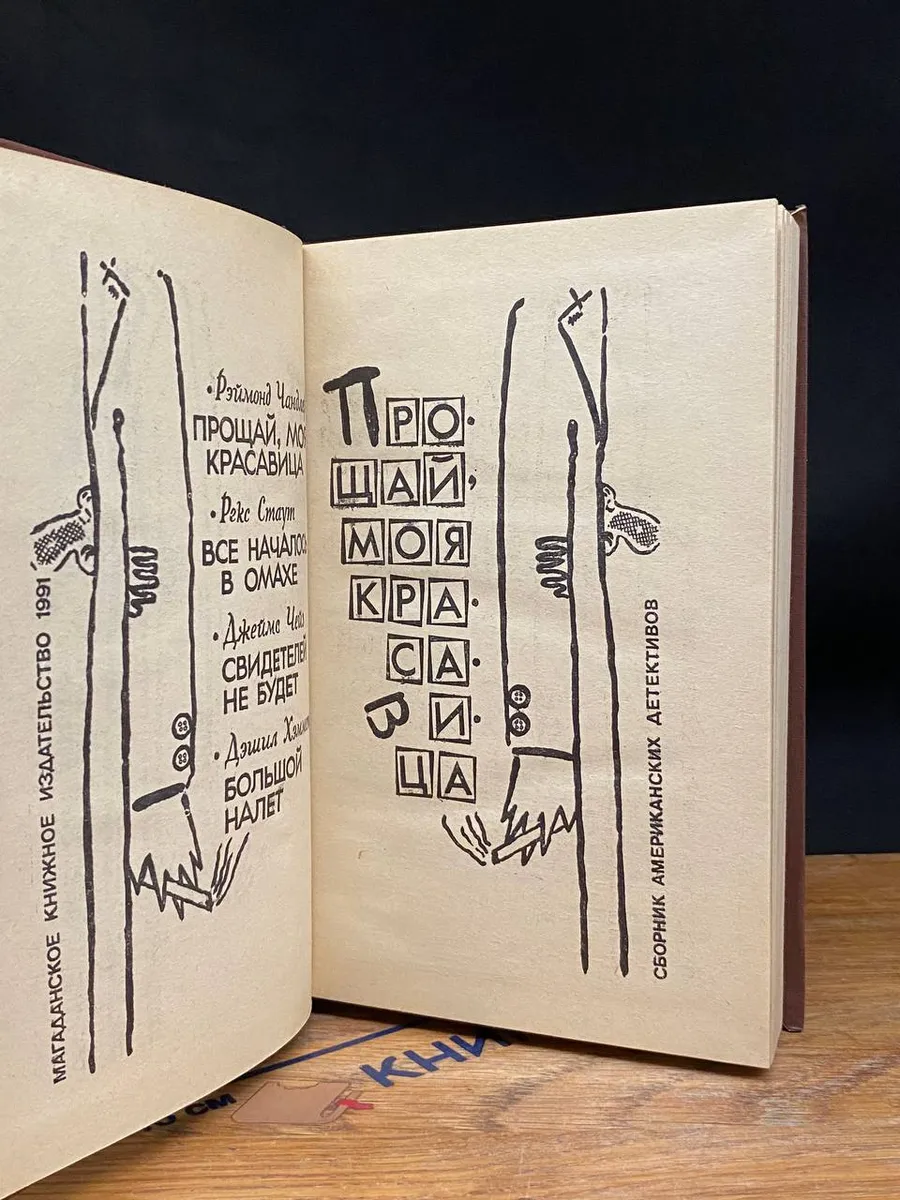 МАГАДАНСКОЕ КНИЖНОЕ ИЗДАТЕЛЬСТВО 1991
• Рэймонд
ПРОЩАЙ,
КРАСАВИЦА
• Рекс Стаут
ВСЕ НАЧАЛОСЬ
В ОМАХЕ
• Джеймс
СВИДЕТЕЛЕЙ
НЕ БУДЕТ
• Дэшил
БОЛЬШОЙ
НАЛЕТ
ПРО-
ЩАЙ,
МОЯ
КРА-
СА-
ВИ-
ЦА
СБОРНИК АМЕРИКАНСКИХ ДЕТЕКТИВОВ
СМ